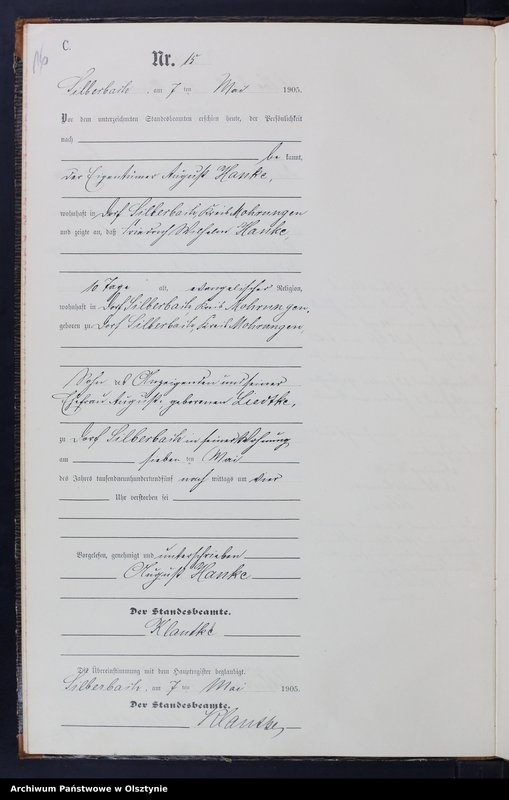 C.
Nr. 15
Silberbach, am 7 ten Mai 1905.
Vor dem unterzeichneten Standesbeamten erschien heute, der Persönlichkeit
nach
be kannt,
der Eigentümer August Hanke,
wohnhaft in Dorf Silberbach, Kreis Mohrungen
und zeigte an, daß Friedrich Wilhelm Hanke,
10 Tage alt, evangelischer Religion,
wohnhaft in Dorf Silberbach, Kreis Mohrungen,
geboren zu Dorf Silberbach, Kreis Mohrungen,
Sohn des Anzeigenden und seiner
Ehefrau Auguste geborenen Liedtke,
zu Dorf Silberbach in seiner Wohnung
am sieben ten Mai
des Jahres tausendneunhundertundfünf nach mittags um vier
Uhr verstorben sei
Vorgelesen, genehmigt und unterschrieben
August Hanke
Der Standesbeamte.
Klautke
Die Übereinstimmung mit dem Hauptregister beglaubigt.
Silberbach, am 7 ten Mai 1905.
Der Standesbeamte.
Klautke
Archiwum Państwowe w Olsztynie